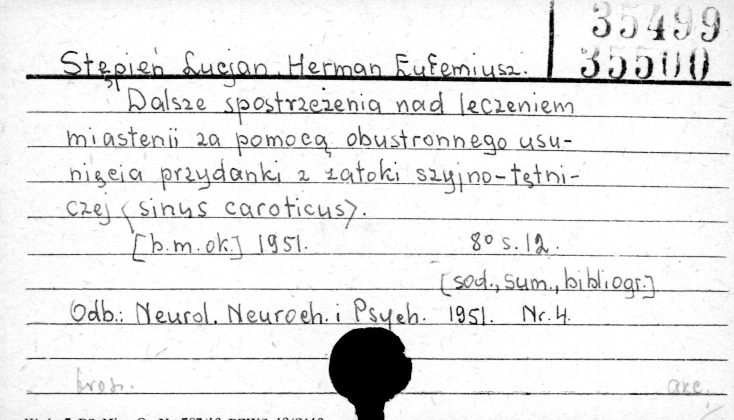 35499
35500
Stępień Lucjan, Herman Eufemiusz.
Dalsze spostrzeżenia nad leczeniem
miastenii za pomocą obustronnego usu-
nięcia przydanki z zatoki szyjno-tętni-
czej <sinus caroticus>.
[b.m.ok.] 1951. 8° s. 12.
[sod., sum., bibliogr.]
Odb.: Neurol. Neuroch. i Psych. 1951. Nr. 4.
brosz. akc.